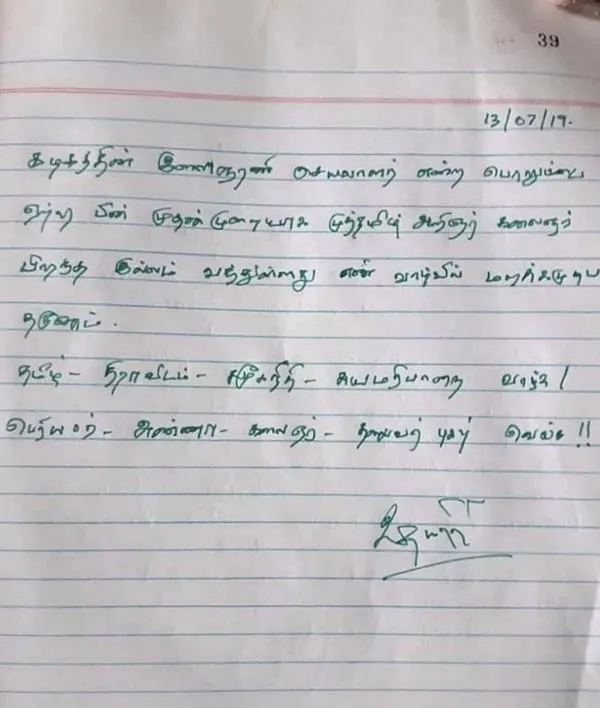 39
13/07/19.
கழகத்தின் இளைஞரணி செயலாளர் என்ற பொறுப்பை
ஏற்ற பின் முதன் முறையாக முத்தமிழ் அறிஞர் கலைஞர்
பிறந்த இல்லம் வந்துள்ளது என் வாழ்வில் மறக்கமுடியா
தருணம்.
தமிழ் - திராவிடம் - சமூகநீதி - சுயமரியாதை வாழ்க!
பெரியார் - அண்ணா - கலைஞர் - தலைவர் புகழ் வெல்க!!